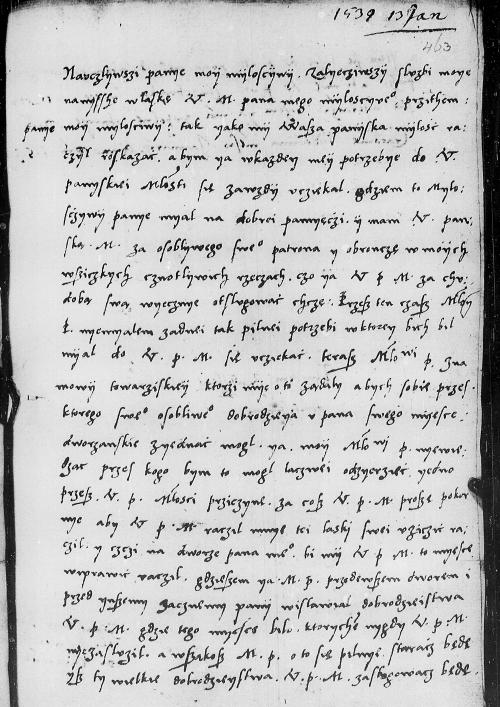 1539 13 Jan
463
Nauczlywszi panye moy myloscywy. Zalyeczywszy sluzbi moye
nanyssche w laskę V. M. pana mego myloscyve° przithem:
panye moy mylosciwy: tak yako my Wasza panyska mylosc ra-
czyl roskazac, abym ya wkazdey mey potrzebye do V.
panyskiei Mlosti się zawzdy vcziekal. gdziem to mylo:
sczywy panye myal na dobrei pamyęczi. y mam V. pan:
ską. M. za osoblywego swe° patrona y obronczę w moych
wsziczkych cznotlywich rzeczach. czo ya V p M. za chv:
dobą swą wyecznye otslugowac chczę. Przesz ten czasz Mlosczy
P. nyemyalem zadnei tak pilnei potrzebi w ktorey bich bil
myal do V. p. M. się vcziekac. terasz Mlowi p. zna
mowy towarziskiey ktorzi mye o ti ządaly abych sobie przes
ktorego swe° osobliwe° dobrodzieya v pana swego myesce
dworzanskie zyednac mogl. ya. moy Mlowi p. nyewie:
dzac przes kogo bym to mogl laczwei odzyerzecz, yedno
przesz. V. p. Mlosci prziczynę. za cosz V. p. M. proszę pokor
nye aby V p M raczil mnye tei laski swei vziczic ra:
czil. y czci na dworze pana me°. bi my V p M. to myesce
wyprawic raczil. gdzieszem ya M. p. przedewszem dworem i
przed ynszemy zacznemy pany wislawial dobrodzieistwa
V. p. M. gdzie tego myesce bilo. ktorych nygdy V. p. M.
nyezasluzil. a wszakosz M. p. o to się pilnye staracz będę
ysz ty wielkie dobrodzieystwa. V. p. M. zaslugowacz będę.